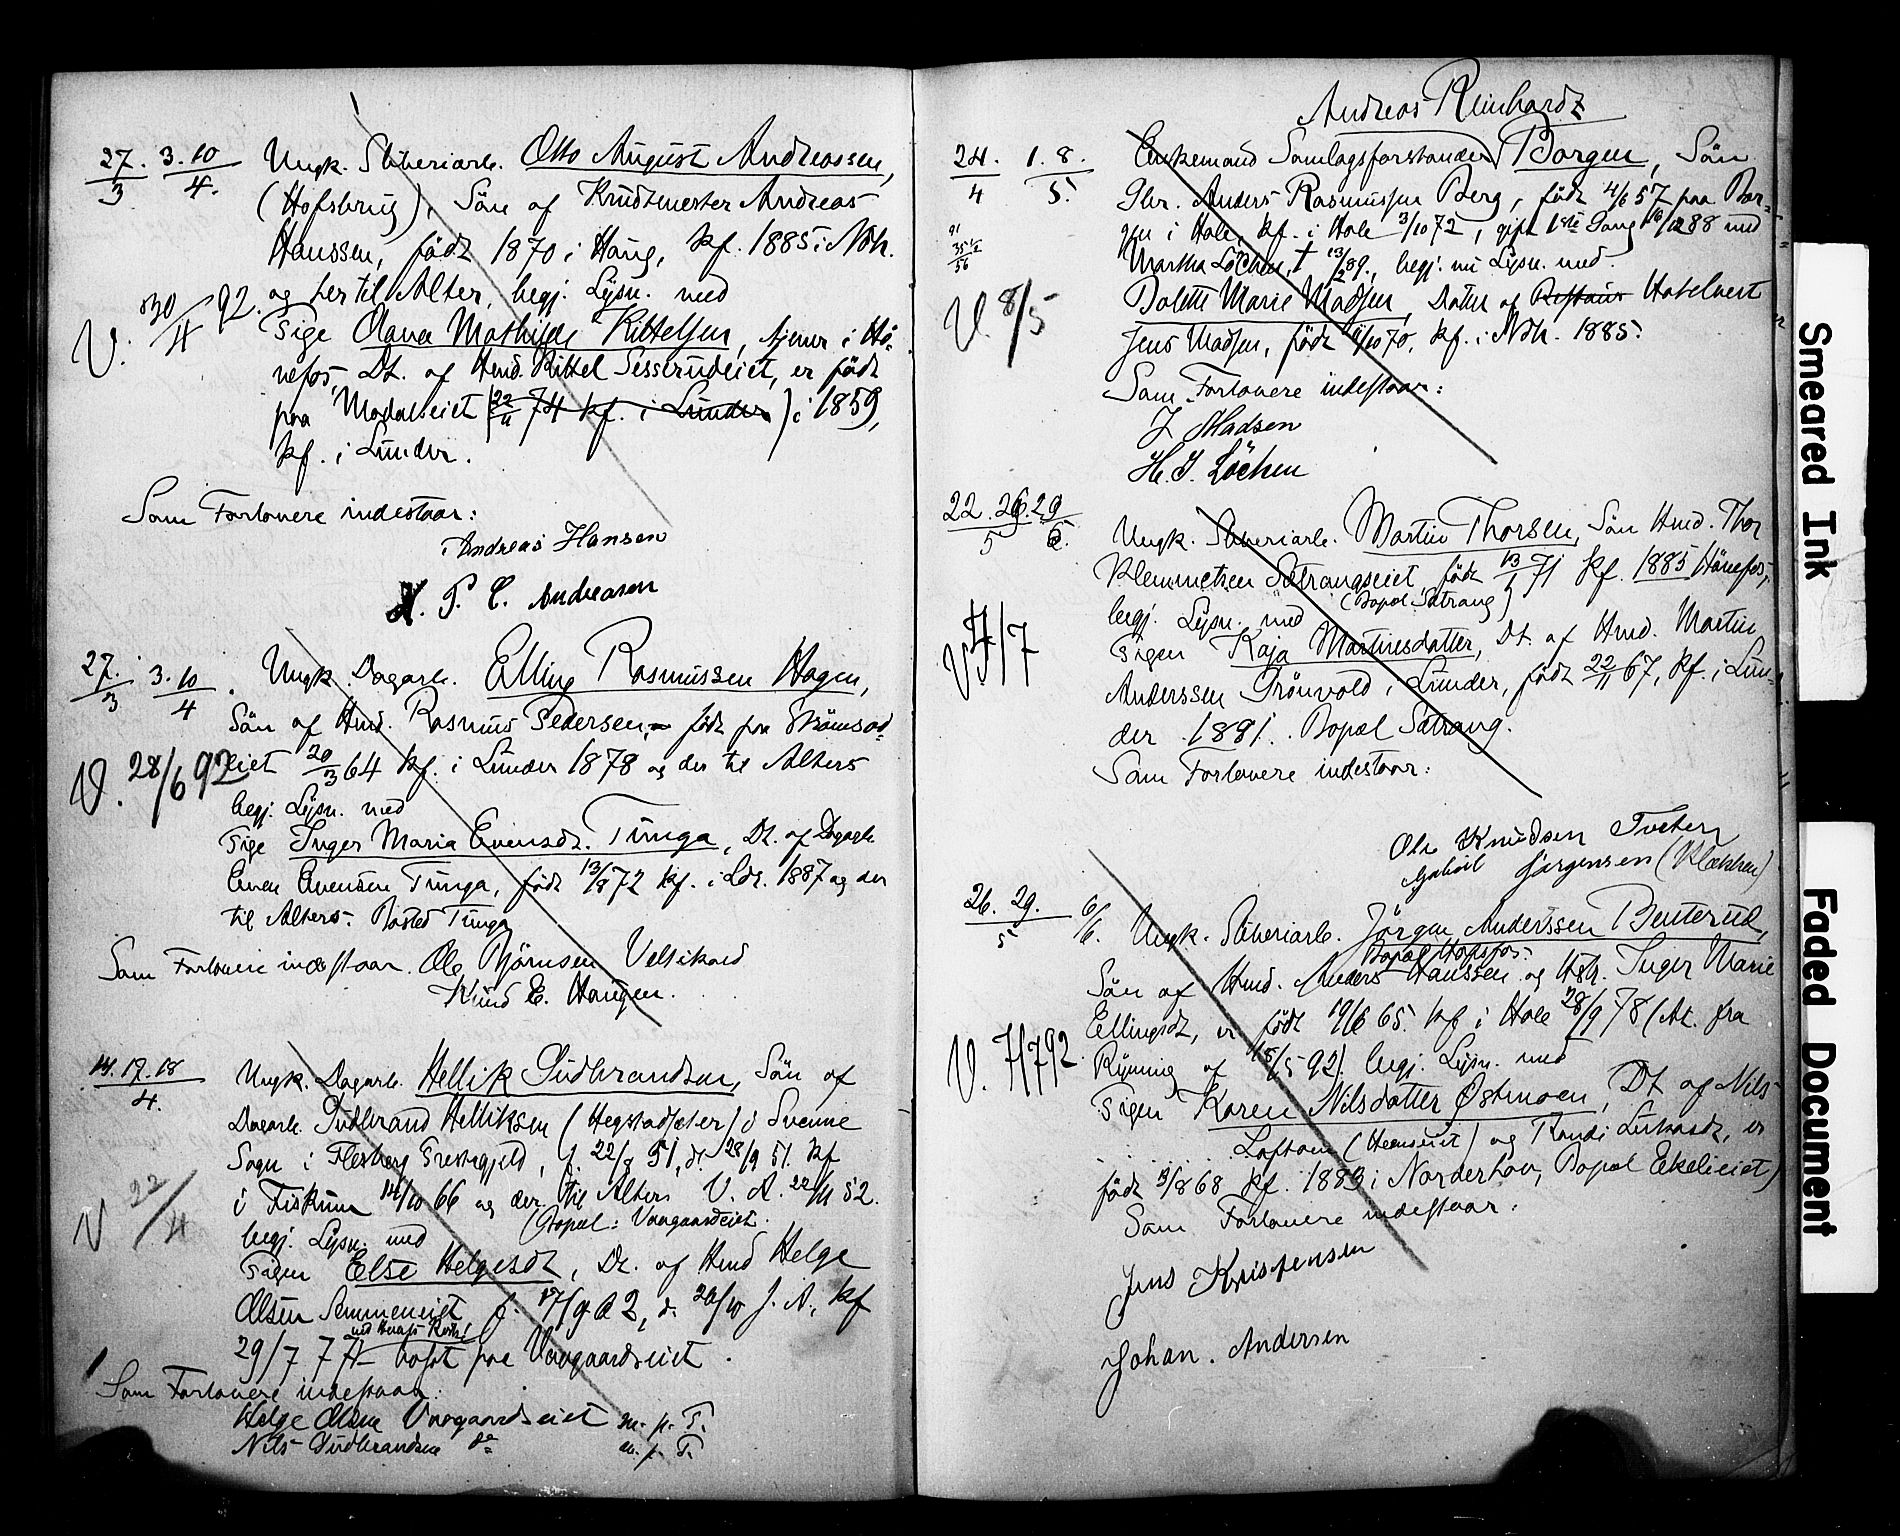 27. 3. 10 Ungk. Sliberiarb. Otto August Andreassen,
3 4. (Hofsbrug), Sön af Krudtmester Andreas
Hanssen, födt 1870 i Haug, kf. 1885 i Ndh.
og her til Alter, begj. Lysn. med
V. 30/4 92. Pige Olava Mathilde Kittelsen, tjener i Hö-
nefos, Dt. af Hmd. Kittel Sesserudeiet, er födt
paa Modalseiet (22/11 74 kf. i Lunder) i 1859,
kf. i Lunder.
Som Forlovere indestaar:
Andreas Hansen
H. P. C. Andreasen
27. 3. 10 Ungk. Dagarb. Elling Rasmussen Hagen,
3 4 Sön af Hmd. Rasmus Pedersen, födt paa Strömsod-
V. 28/6 92 eiet 20/3 64 kf. i Lunder 1878 og der til Alters
begj. Lysn. med
Pige Inger Maria Evensdt. Tunga, Dt. af Dagarb.
Even Evensen Tunga, födt 13/8 72 kf. i Ldr. 1887 og der
til Alters. Bosted Tunga
Som Forlovere indestaar. Ole Björnsen Velsikaed
Knud E. Haugen.
14. 17. 18 Ungk. Dagarb. Hellik Gudbrandsen, Sön af
4. Dagarb. Gudbrand Helliksen (Hegstadsæter) i Svenne
Sogn i Flesberg Prestegjeld, f. 22/8 51, d. 28/9 51. kf
i Fiskum 14/10 66 og der til Alters V. A. 22/11 52.
(Bopæl: Vaagaardseiet.
V 22/4 begj. Lysn. med
Pigen Else Helgesdt, Dt. af Hmd Helge
Olsen Semmeneiet f. 17/9 62, d. 26/10 s. A., kf
29/7 77 bosat paa Vaagaardseiet.
Som Forlovere indestaar:
Helge Olsen Vaagaardseiet m. p. P.
Nils Gudbrandsen do m. p. P.
Andreas Reinhardt
24. 1. 8. Enkemand Samlagsforstander Borgen, Sön
4 5. Gbr. Anders Rasmussen Berg, födt 4/6 57 paa Bor-
gen i Hole, kf. i Hole 3/10 72, gift 1ste Gang 16/12 88 med
Martha Löchen, † 13/2 89., begj. nu Lysn. med
V. 8/5 Bolette Marie Madsen, Datter af Restaur Hotelvert
Jens Madsen, födt 1/10 70, kf. i Ndh. 1885.
Som Forlovere indestaar:
J Madsen
H. J. Löchen
22. 26. 29 Ungk. Sliberiarb. Martin Thorsen, Sön Hmd. Thor
5 Klemmetsen Sætrangseiet, födt 13/1 71 kf. 1885 Hönefos,
(Bopæl Sætrang)
begj. Lysn. med
V 4/7 Pigen Kaja Martinesdatter, Dt. af Hmd. Martin
Anderssen Grönvold i Lunder, födt 22/11 67, kf. i Lun-
der 1881. Bopæl Sætrang.
Som Forlovere indestaar:
Ole Knudsen Tveten
Gabriel Jörgensen (Klækken)
26. 29. 6/6. Ungk. Sliberiarb. Jörgen Anderssen Benterud,
5 Bopæl Hofsfos.
Sön af Hmd. Anders Hanssen og Hstr. Inger Marie
Ellingsdt, er födt 19/6 65. kf i Hole 28/9 78 (At. fra
V. 7/7 92. Rÿnning af 15/5 92). begj. Lysn. med
Pigen Karen Nilsdatter Østmoen, Dt af Nils
Loftsen (Heenseiet) og Randi Lukasdt, er
födt 9/8 68 kf. 1883 i Norderhov, Bopæl Eekelieiet)
Som Forlovere indestaar:
Jens Kristensen
Johan. Andersen
Smeared Ink
Faded Document